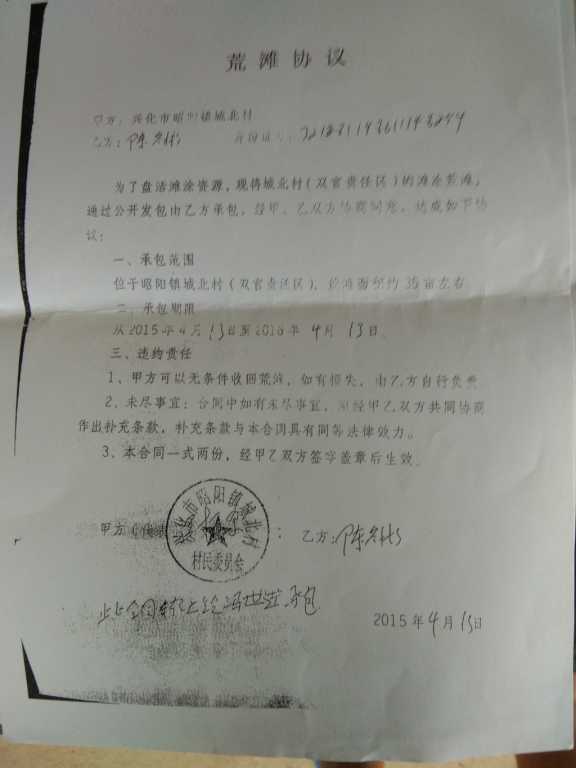 荒滩协议
甲方：兴化市昭阳镇城北村
乙方：陈 身份证号：
为了盘活滩涂资源，现将城北村（双官责任区）的滩涂荒滩，
通过公开发包由乙方承包，经甲、乙双方协商同意，达成如下协
议：
一、承包范围
位于昭阳镇城北村（双官责任区），荒滩面积约35亩左右
二、承包期限
从2015年4月13日至2016年4月13日
三、违约责任
1、甲方可以无条件收回荒滩，如有损失，由乙方自行负责
2、未尽事宜：合同中如有未尽事宜，须经甲乙双方共同协商
作出补充条款，补充条款与本合同具有同等法律效力。
3、本合同一式两份，经甲乙双方签字盖章后生效。
甲方（代表 ： 乙方：陈
兴化市昭阳镇城北村
村民委员会
此合同 承包
2015年4月13日